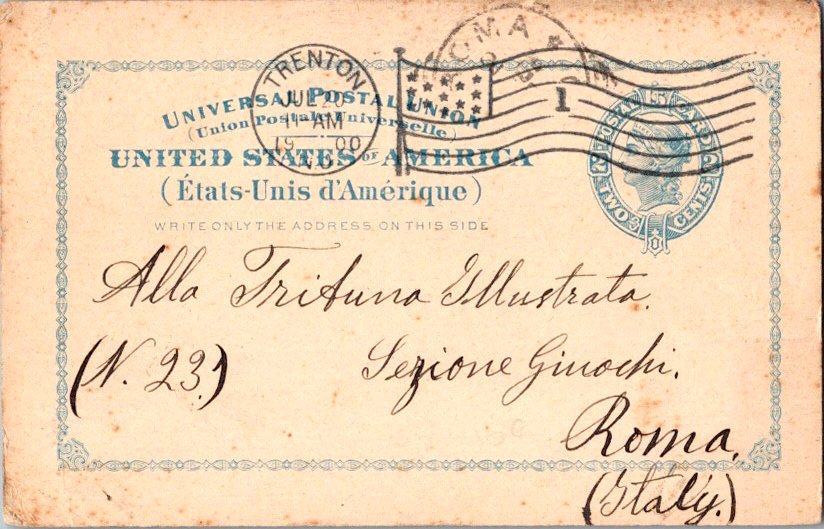 TRENTON
JUL 20
11 AM
19 00
ROMA
1
UNIVERSAL POSTAL UNION
(Union Postale Universelle)
UNITED STATES OF AMERICA
(États-Unis d'Amérique)
WRITE ONLY THE ADDRESS ON THIS SIDE
POSTAL CARD
2 TWO CENTS 2
Alla Tribuna Illustrata.
(N. 23.) Sezione Giuochi.
Roma.
(Italy.)